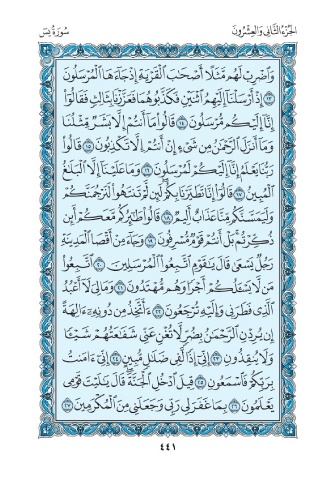 الجُزْءُ الثَّانِي وَالعِشْرُونَ
سُورَةُ يسٓ
وَٱضۡرِبۡ لَهُم مَّثَلًا أَصۡحَٰبَ ٱلۡقَرۡيَةِ إِذۡ جَآءَهَا ٱلۡمُرۡسَلُونَ
١٣ إِذۡ أَرۡسَلۡنَآ إِلَيۡهِمُ ٱثۡنَيۡنِ فَكَذَّبُوهُمَا فَعَزَّزۡنَا بِثَالِثٖ فَقَالُوٓاْ
إِنَّآ إِلَيۡكُم مُّرۡسَلُونَ ١٤ قَالُواْ مَآ أَنتُمۡ إِلَّا بَشَرٞ مِّثۡلُنَا
وَمَآ أَنزَلَ ٱلرَّحۡمَٰنُ مِن شَيۡءٍ إِنۡ أَنتُمۡ إِلَّا تَكۡذِبُونَ ١٥ قَالُواْ
رَبُّنَا يَعۡلَمُ إِنَّآ إِلَيۡكُمۡ لَمُرۡسَلُونَ ١٦ وَمَا عَلَيۡنَآ إِلَّا ٱلۡبَلَٰغُ
ٱلۡمُبِينُ ١٧ قَالُوٓاْ إِنَّا تَطَيَّرۡنَا بِكُمۡۖ لَئِن لَّمۡ تَنتَهُواْ لَنَرۡجُمَنَّكُمۡ
وَلَيَمَسَّنَّكُم مِّنَّا عَذَابٌ أَلِيمٞ ١٨ قَالُواْ طَٰٓئِرُكُم مَّعَكُمۡ أَئِن
ذُكِّرۡتُمۚ بَلۡ أَنتُمۡ قَوۡمٞ مُّسۡرِفُونَ ١٩ وَجَآءَ مِنۡ أَقۡصَا ٱلۡمَدِينَةِ
رَجُلٞ يَسۡعَىٰ قَالَ يَٰقَوۡمِ ٱتَّبِعُواْ ٱلۡمُرۡسَلِينَ ٢٠ ٱتَّبِعُواْ
مَن لَّا يَسۡـَٔلُكُمۡ أَجۡرٗا وَهُم مُّهۡتَدُونَ ٢١ وَمَالِيَ لَآ أَعۡبُدُ
ٱلَّذِي فَطَرَنِي وَإِلَيۡهِ تُرۡجَعُونَ ٢٢ ءَأَتَّخِذُ مِن دُونِهِۦٓ ءَالِهَةً
إِن يُرِدۡنِ ٱلرَّحۡمَٰنُ بِضُرّٖ لَّا تُغۡنِ عَنِّي شَفَٰعَتُهُمۡ شَيۡـٔٗا
وَلَا يُنقِذُونِ ٢٣ إِنِّيٓ إِذٗا لَّفِي ضَلَٰلٖ مُّبِينٍ ٢٤ إِنِّيٓ ءَامَنتُ
بِرَبِّكُمۡ فَٱسۡمَعُونِ ٢٥ قِيلَ ٱدۡخُلِ ٱلۡجَنَّةَۖ قَالَ يَٰلَيۡتَ قَوۡمِي
يَعۡلَمُونَ ٢٦ بِمَا غَفَرَ لِي رَبِّي وَجَعَلَنِي مِنَ ٱلۡمُكۡرَمِينَ ٢٧
٤٤١